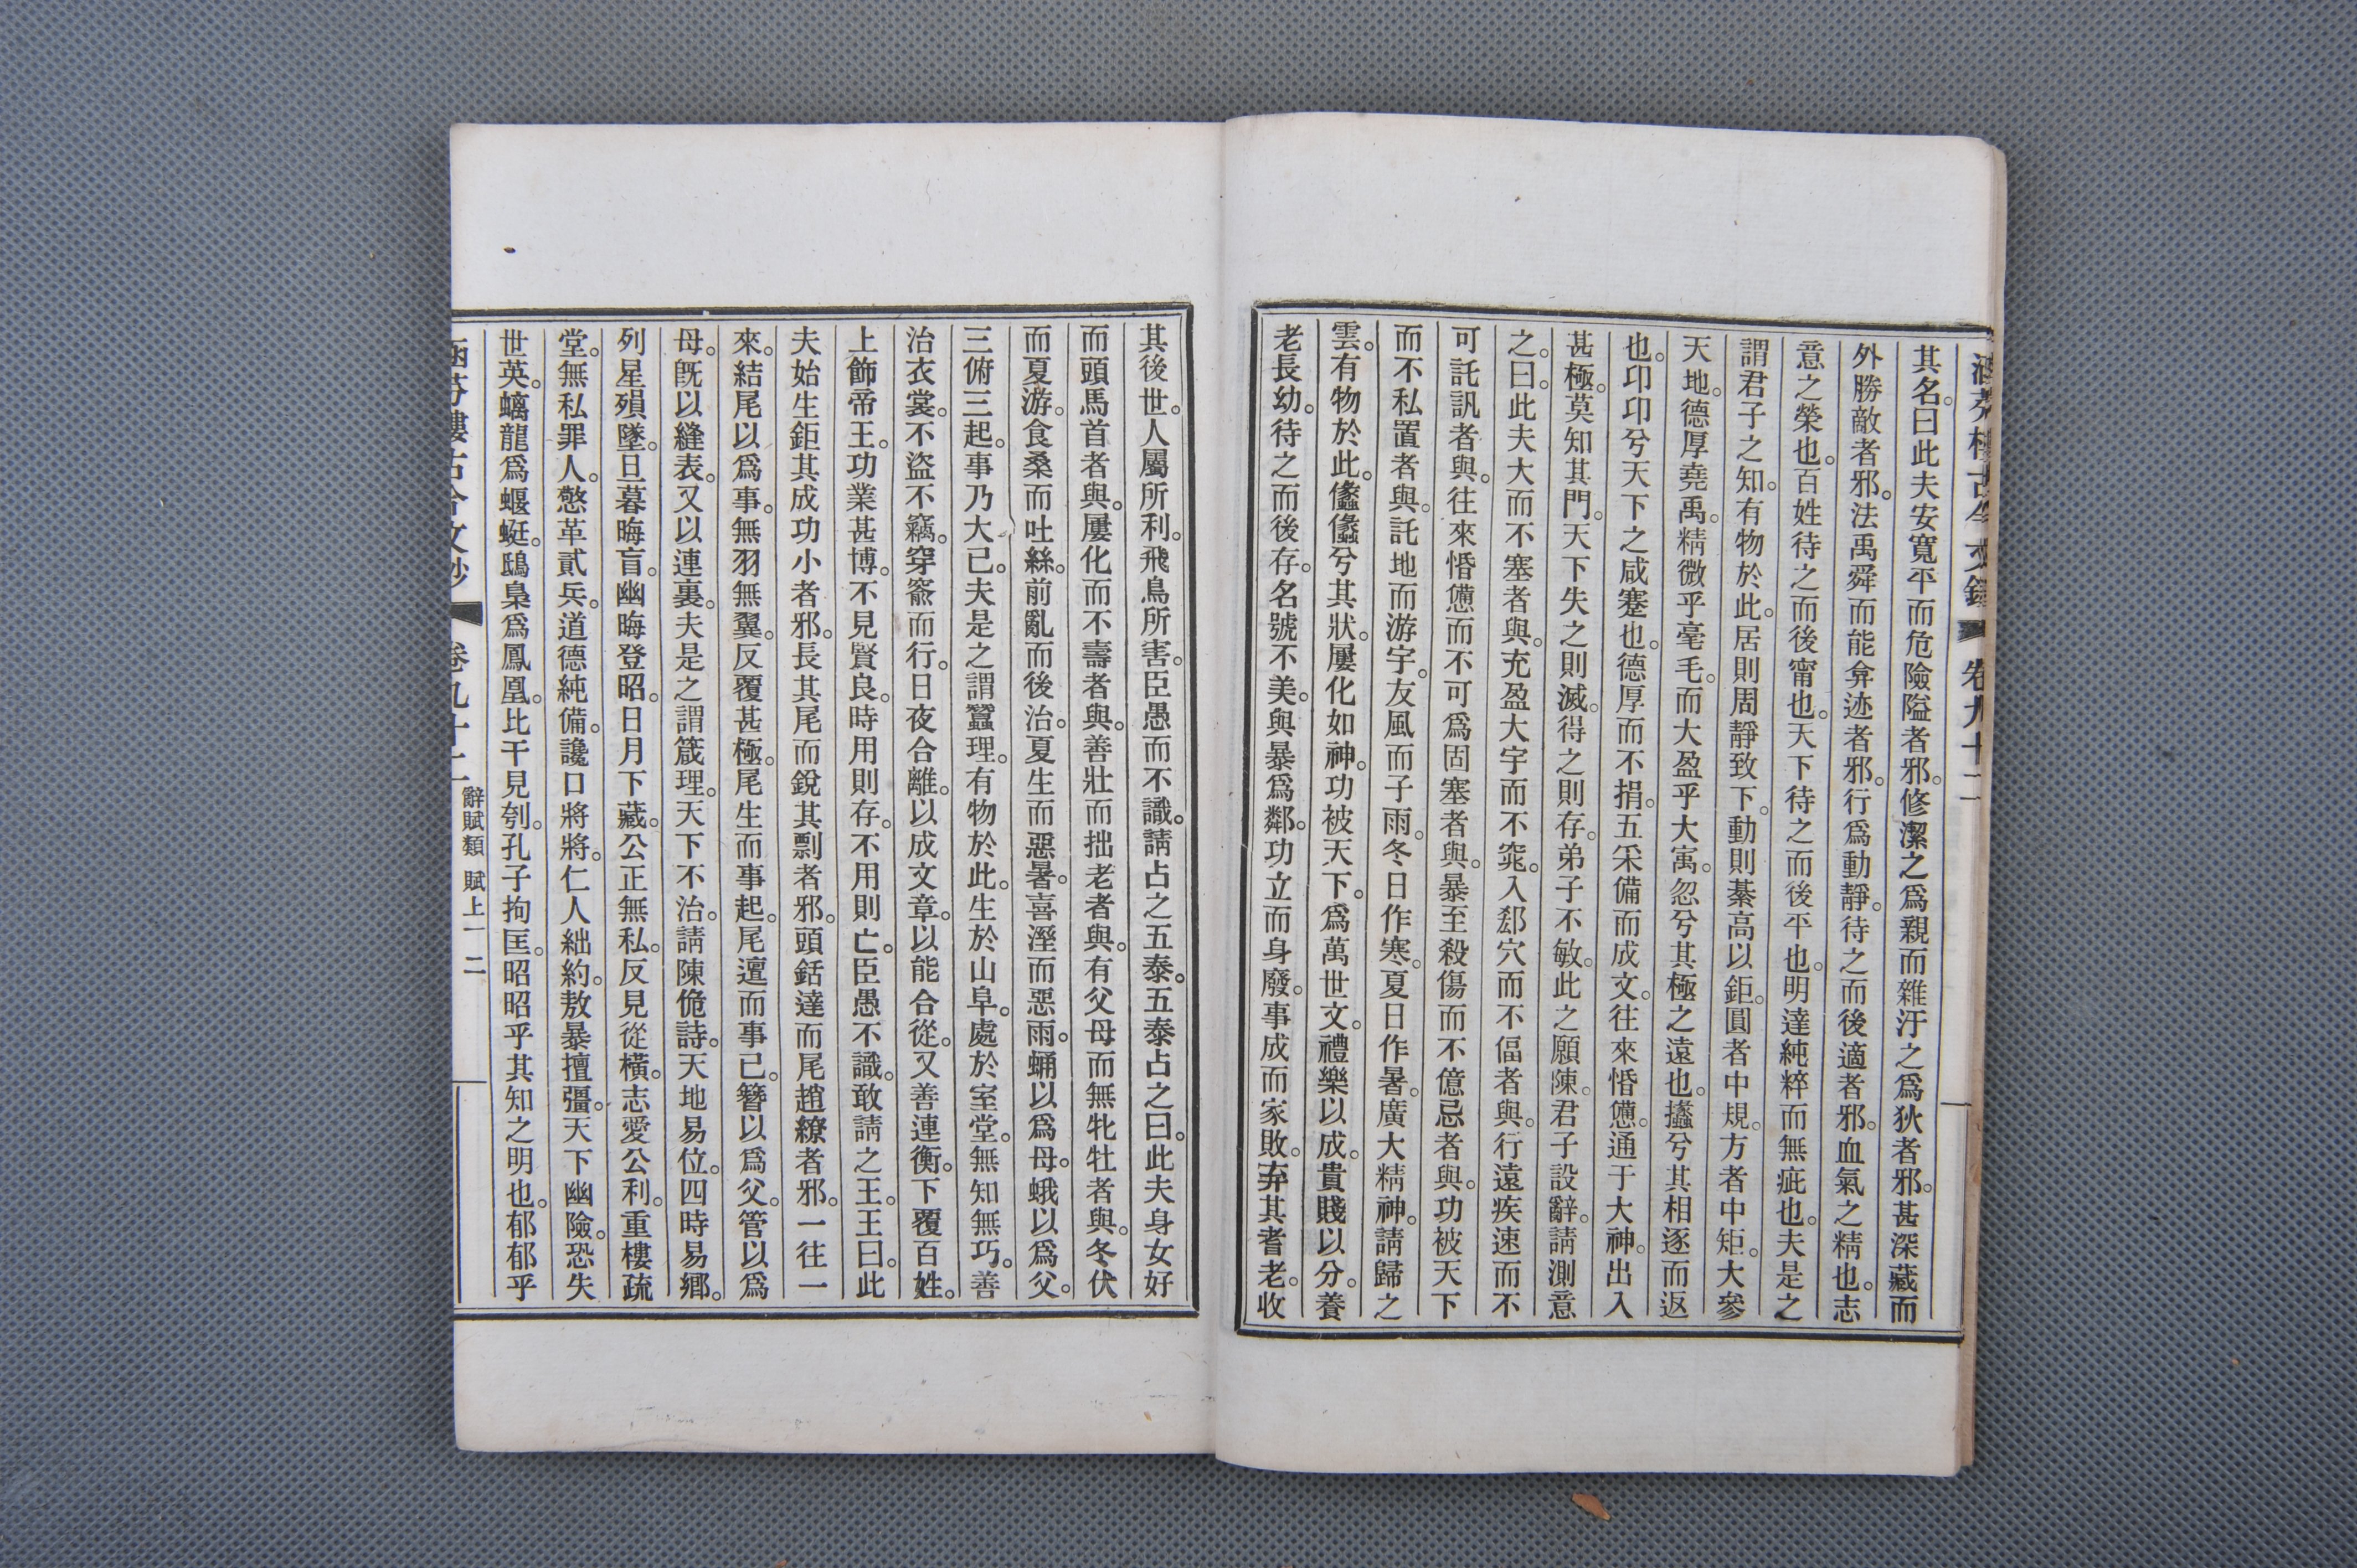 涵芬樓古今文鈔 卷九十二
其名。曰此夫安寬平而危險隘者邪。修潔之爲親而雜汙之爲狄者邪。甚深藏而
外勝敵者邪。法禹舜而能弇迹者邪。行爲動靜。待之而後適者邪。血氣之精也。志
意之榮也。百姓待之而後甯也。天下待之而後平也。明達純粹而無疵也。夫是之
謂君子之知。有物於此。居則周靜致下。動則綦高以鉅。圓者中規。方者中矩。大參
天地。德厚堯禹。精微乎毫毛。而大盈乎大寓。忽兮其極之遠也。攭兮其相逐而返
也。卬卬兮天下之咸蹇也。德厚而不捐。五采備而成文。往來惛憊。通于大神。出入
甚極。莫知其門。天下失之則滅。得之則存。弟子不敏。此之願陳。君子設辭。請測意
之。曰。此夫大而不塞者與。充盈大宇而不窕。入郄穴而不偪者與。行遠疾速而不
可託訊者與。往來惛憊而不可爲固塞者與。暴至殺傷而不億忌者與。功被天下
而不私置者與。託地而游宇。友風而子雨。冬日作寒。夏日作暑。廣大精神。請歸之
雲。有物於此。儽儽兮其狀。屢化如神。功被天下。爲萬世文。禮樂以成。貴賤以分。養
老長幼。待之而後存。名號不美。與暴爲鄰。功立而身廢。事成而家敗。弃其耆老。收
其後世。人屬所利。飛鳥所害。臣愚而不識。請占之五泰。五泰占之曰。此夫身女好
而頭馬首者與。屢化而不壽者與。善壯而拙老者與。有父母而無牝牡者與。冬伏
而夏游。食桑而吐絲。前亂而後治。夏生而惡暑。喜溼而惡雨。蛹以爲母。蛾以爲父。
三俯三起。事乃大已。夫是之謂蠶理。有物於此。生於山阜。處於室堂。無知無巧。善
治衣裳。不盜不竊。穿窬而行。日夜合離。以成文章。以能合從。又善連衡。下覆百姓。
上飾帝王。功業甚博。不見賢良。時用則存。不用則亡。臣愚不識。敢請之王。王曰。此
夫始生鉅其成功小者邪。長其尾而銳其剽者邪。頭銛達而尾趙繚者邪。一往一
來。結尾以爲事。無羽無翼。反覆甚極。尾生而事起。尾邅而事已。簪以爲父。管以爲
母。旣以縫表。又以連裏。夫是之謂箴理。天下不治。請陳佹詩。天地易位。四時易鄉。
列星殞墜。旦暮晦盲。幽晦登昭。日月下藏。公正無私。反見從橫。志愛公利。重樓疏
堂。無私罪人。憼革貳兵。道德純備。讒口將將。仁人絀約。敖暴擅彊。天下幽險。恐失
世英。螭龍爲蝘蜓。鴟梟爲鳳凰。比干見刳。孔子拘匡。昭昭乎其知之明也。郁郁乎
涵芬樓古今文鈔 卷九十二 辭賦類 賦上一 二